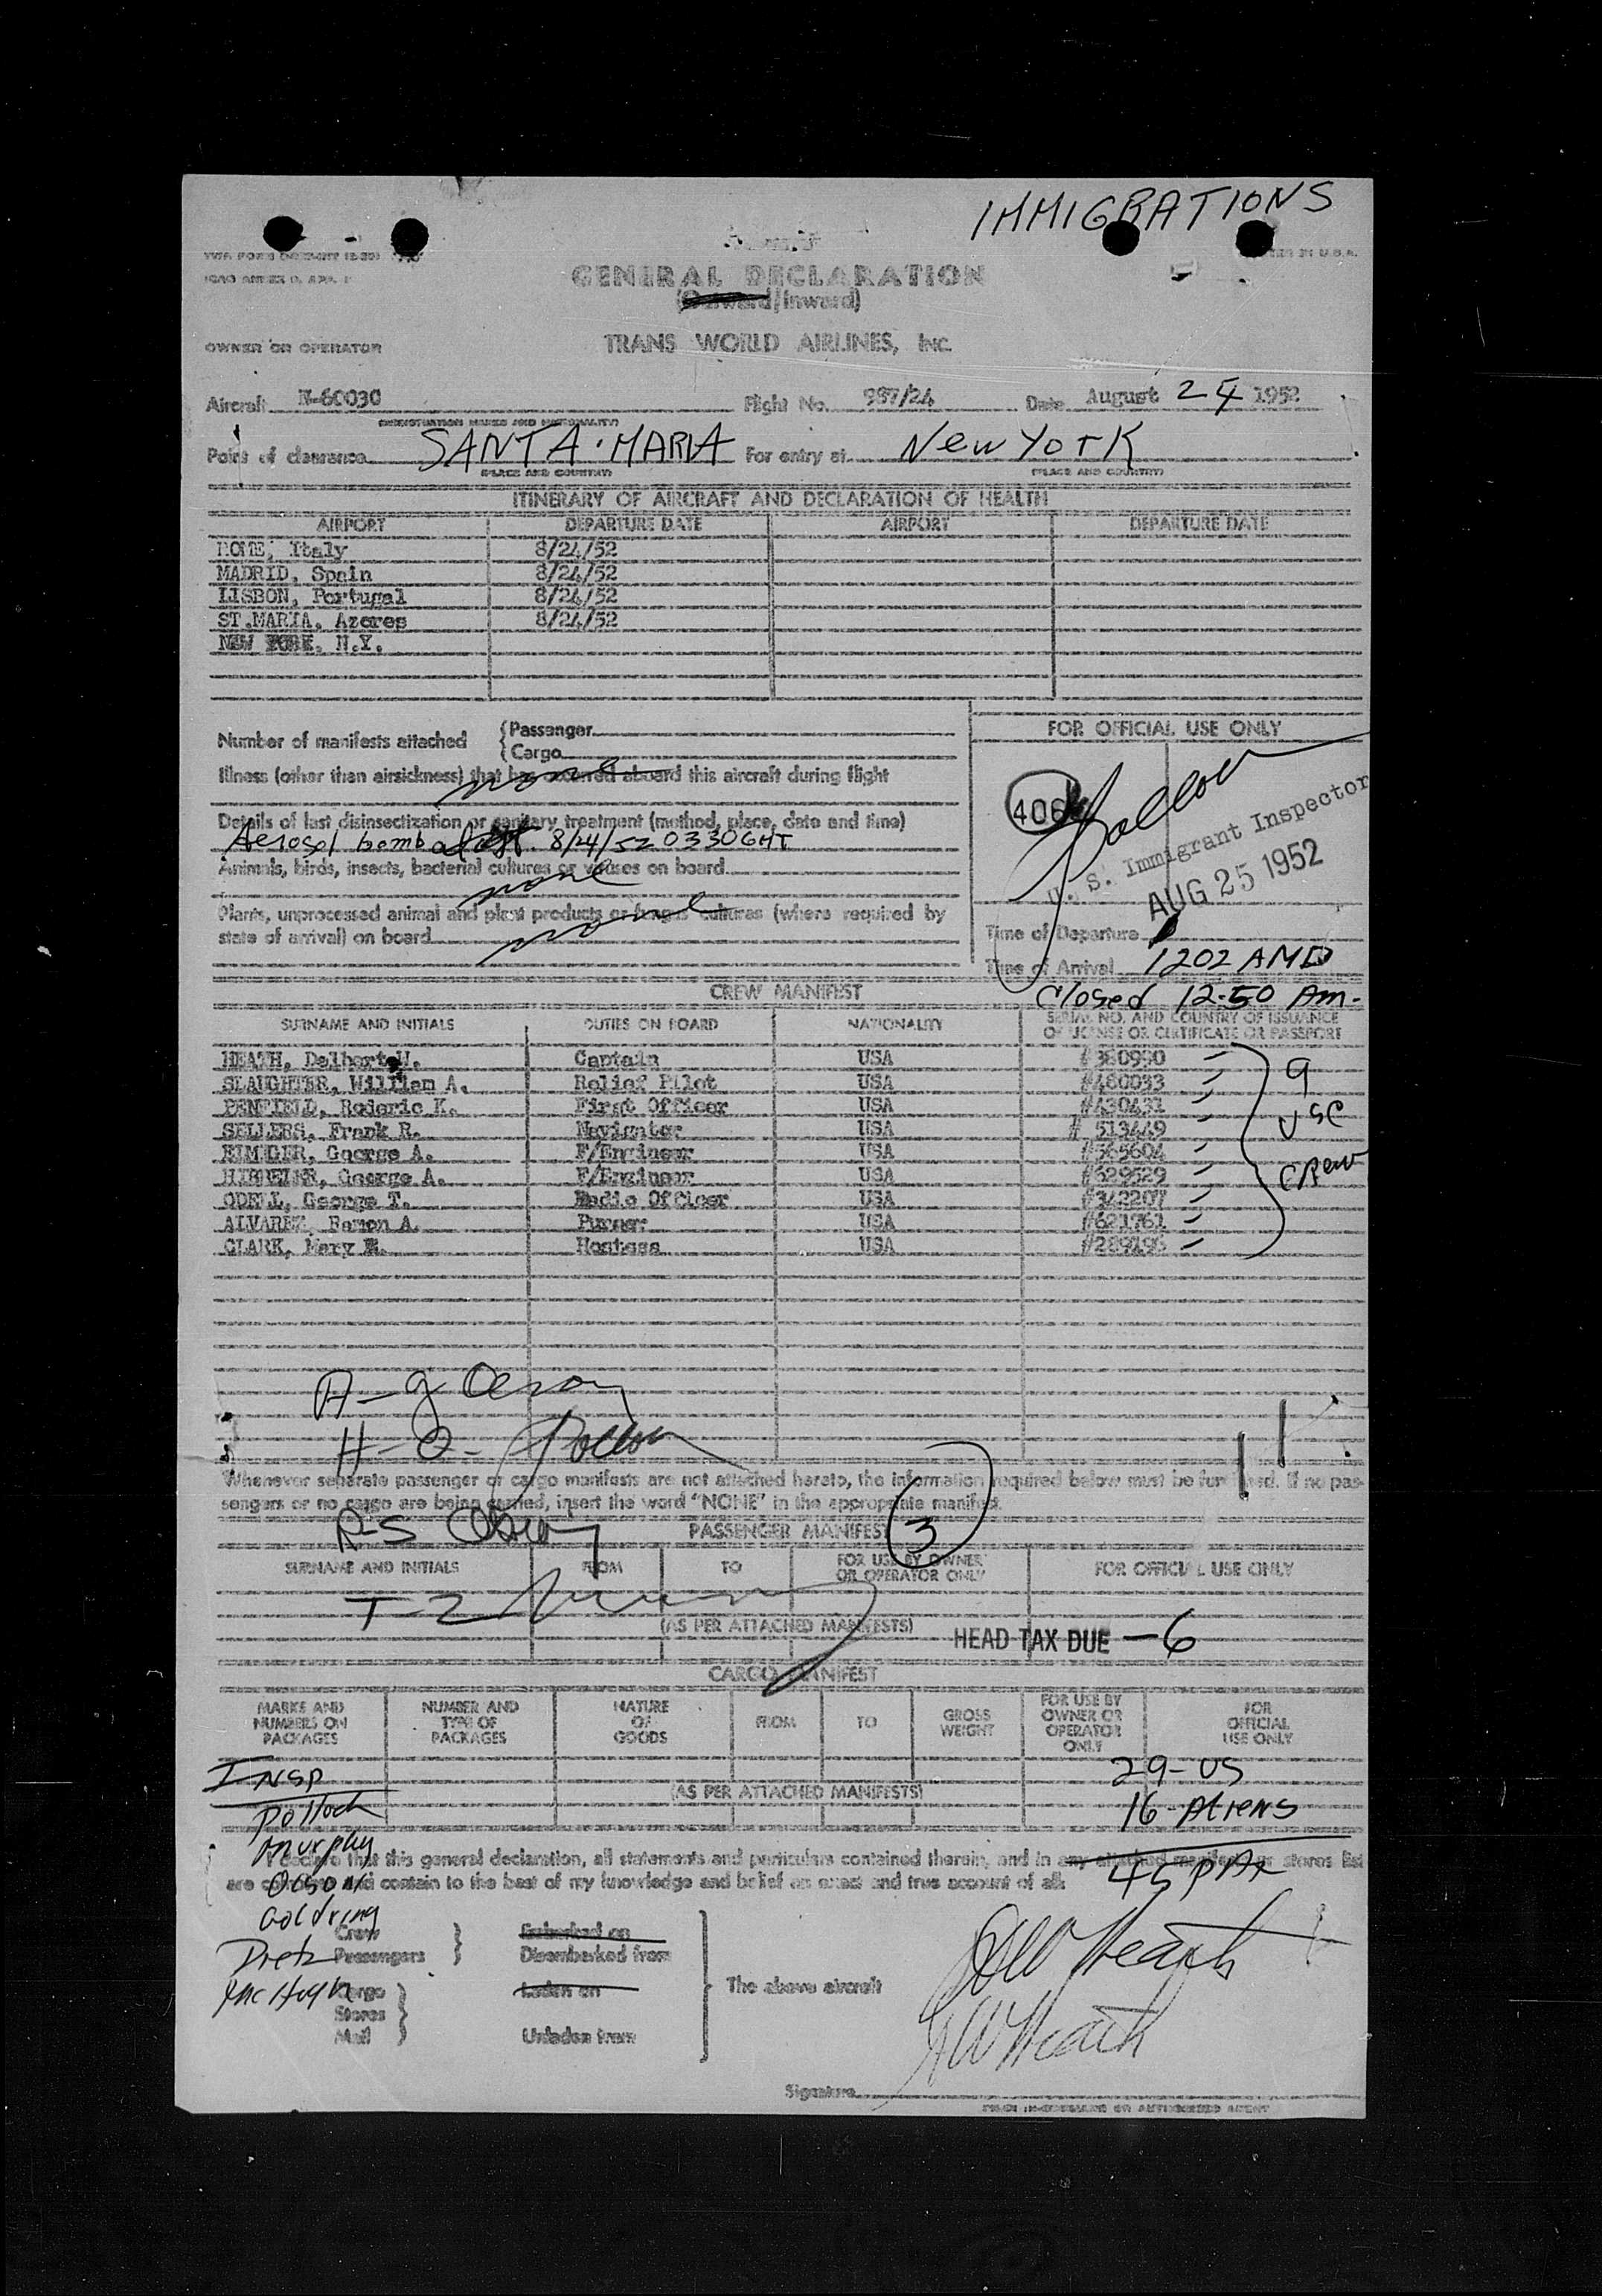 IMMIGRATIONS
GENERAL DECLARATION
(Outward/Inward)
OWNER OR OPERATOR TRANS WORLD AIRLINES, Inc.
Aircraft N-60030 Flight No. 987/24 Date August 24 1952
(REGISTRATION MARKS AND NATIONALITY)
Point of clearance SANTA MARIA For entry at New York
(PLACE AND COUNTRY) (PLACE AND COUNTRY)
ITINERARY OF AIRCRAFT AND DECLARATION OF HEALTH
AIRPORT DEPARTURE DATE AIRPORT DEPARTURE DATE
ROME, Italy 8/24/52
MADRID, Spain 8/24/52
LISBON, Portugal 8/24/52
ST.MARIA, Azores 8/24/52
NEW YORK, N.Y.
Number of manifests attached {Passenger
{Cargo
FOR OFFICIAL USE ONLY
Illness (other than airsickness) that has occurred aboard this aircraft during flight
none
Details of last disinsectization or sanitary treatment (method, place, date and time)
Aerosol bomb 8/24/52 0330GMT
Animals, birds, insects, bacterial cultures or viruses on board
none
Plants, unprocessed animal and plant products or fungus cultures (where required by
state of arrival) on board
none
406
U. S. Immigrant Inspector
AUG 25 1952
Time of Departure
Time of Arrival 1202 AM
Closed 12-50 Am.
CREW MANIFEST
SURNAME AND INITIALS DUTIES ON BOARD NATIONALITY SERIAL NO. AND COUNTRY OF ISSUANCE
OF LICENSE OR CERTIFICATE OR PASSPORT
HEATH, Delbert W. Captain USA #380990
SLAUGHTER, William A. Relief Pilot USA #480033
PENFIELD, Roderic K. First Officer USA #430431
SELLERS, Frank R. Navigator USA # 513449
George A. F/Engineer USA #565604
George A. F/Engineer USA #629529
ODELL, George T. Radio Officer USA #342207
ALVAREZ, Ramon A. Purser USA #621761
CLARK, Mary E. Hostess USA #289196
9
USC
crew
Whenever separate passenger or cargo manifests are not attached hereto, the information required below must be furnished. If no pas-
sengers or no cargo are being carried, insert the word "NONE" in the appropriate manifest.
PASSENGER MANIFEST
3
SURNAME AND INITIALS FROM TO FOR USE BY OWNER
OR OPERATOR ONLY FOR OFFICIAL USE ONLY
(AS PER ATTACHED MANIFESTS)
HEAD TAX DUE -6
CARGO MANIFEST
MARKS AND
NUMBERS ON
PACKAGES NUMBER AND
TYPE OF
PACKAGES NATURE
OF
GOODS FROM TO GROSS
WEIGHT FOR USE BY
OWNER OR
OPERATOR
ONLY FOR
OFFICIAL
USE ONLY
INSP
29-US
(AS PER ATTACHED MANIFESTS)
Pollock
16-Aliens
Murphy
I declare that this general declaration, all statements and particulars contained therein, and in any attached manifest or stores list
Olson
are complete and contain to the best of my knowledge and belief an exact and true account of all:
45
Goldring
Crew
Dietz
Passengers
Embarked on
Disembarked from
McHugh
Cargo
Stores
Mail
Laden on
Unladen from
The above aircraft
DW Heath
DW Heath
Signature